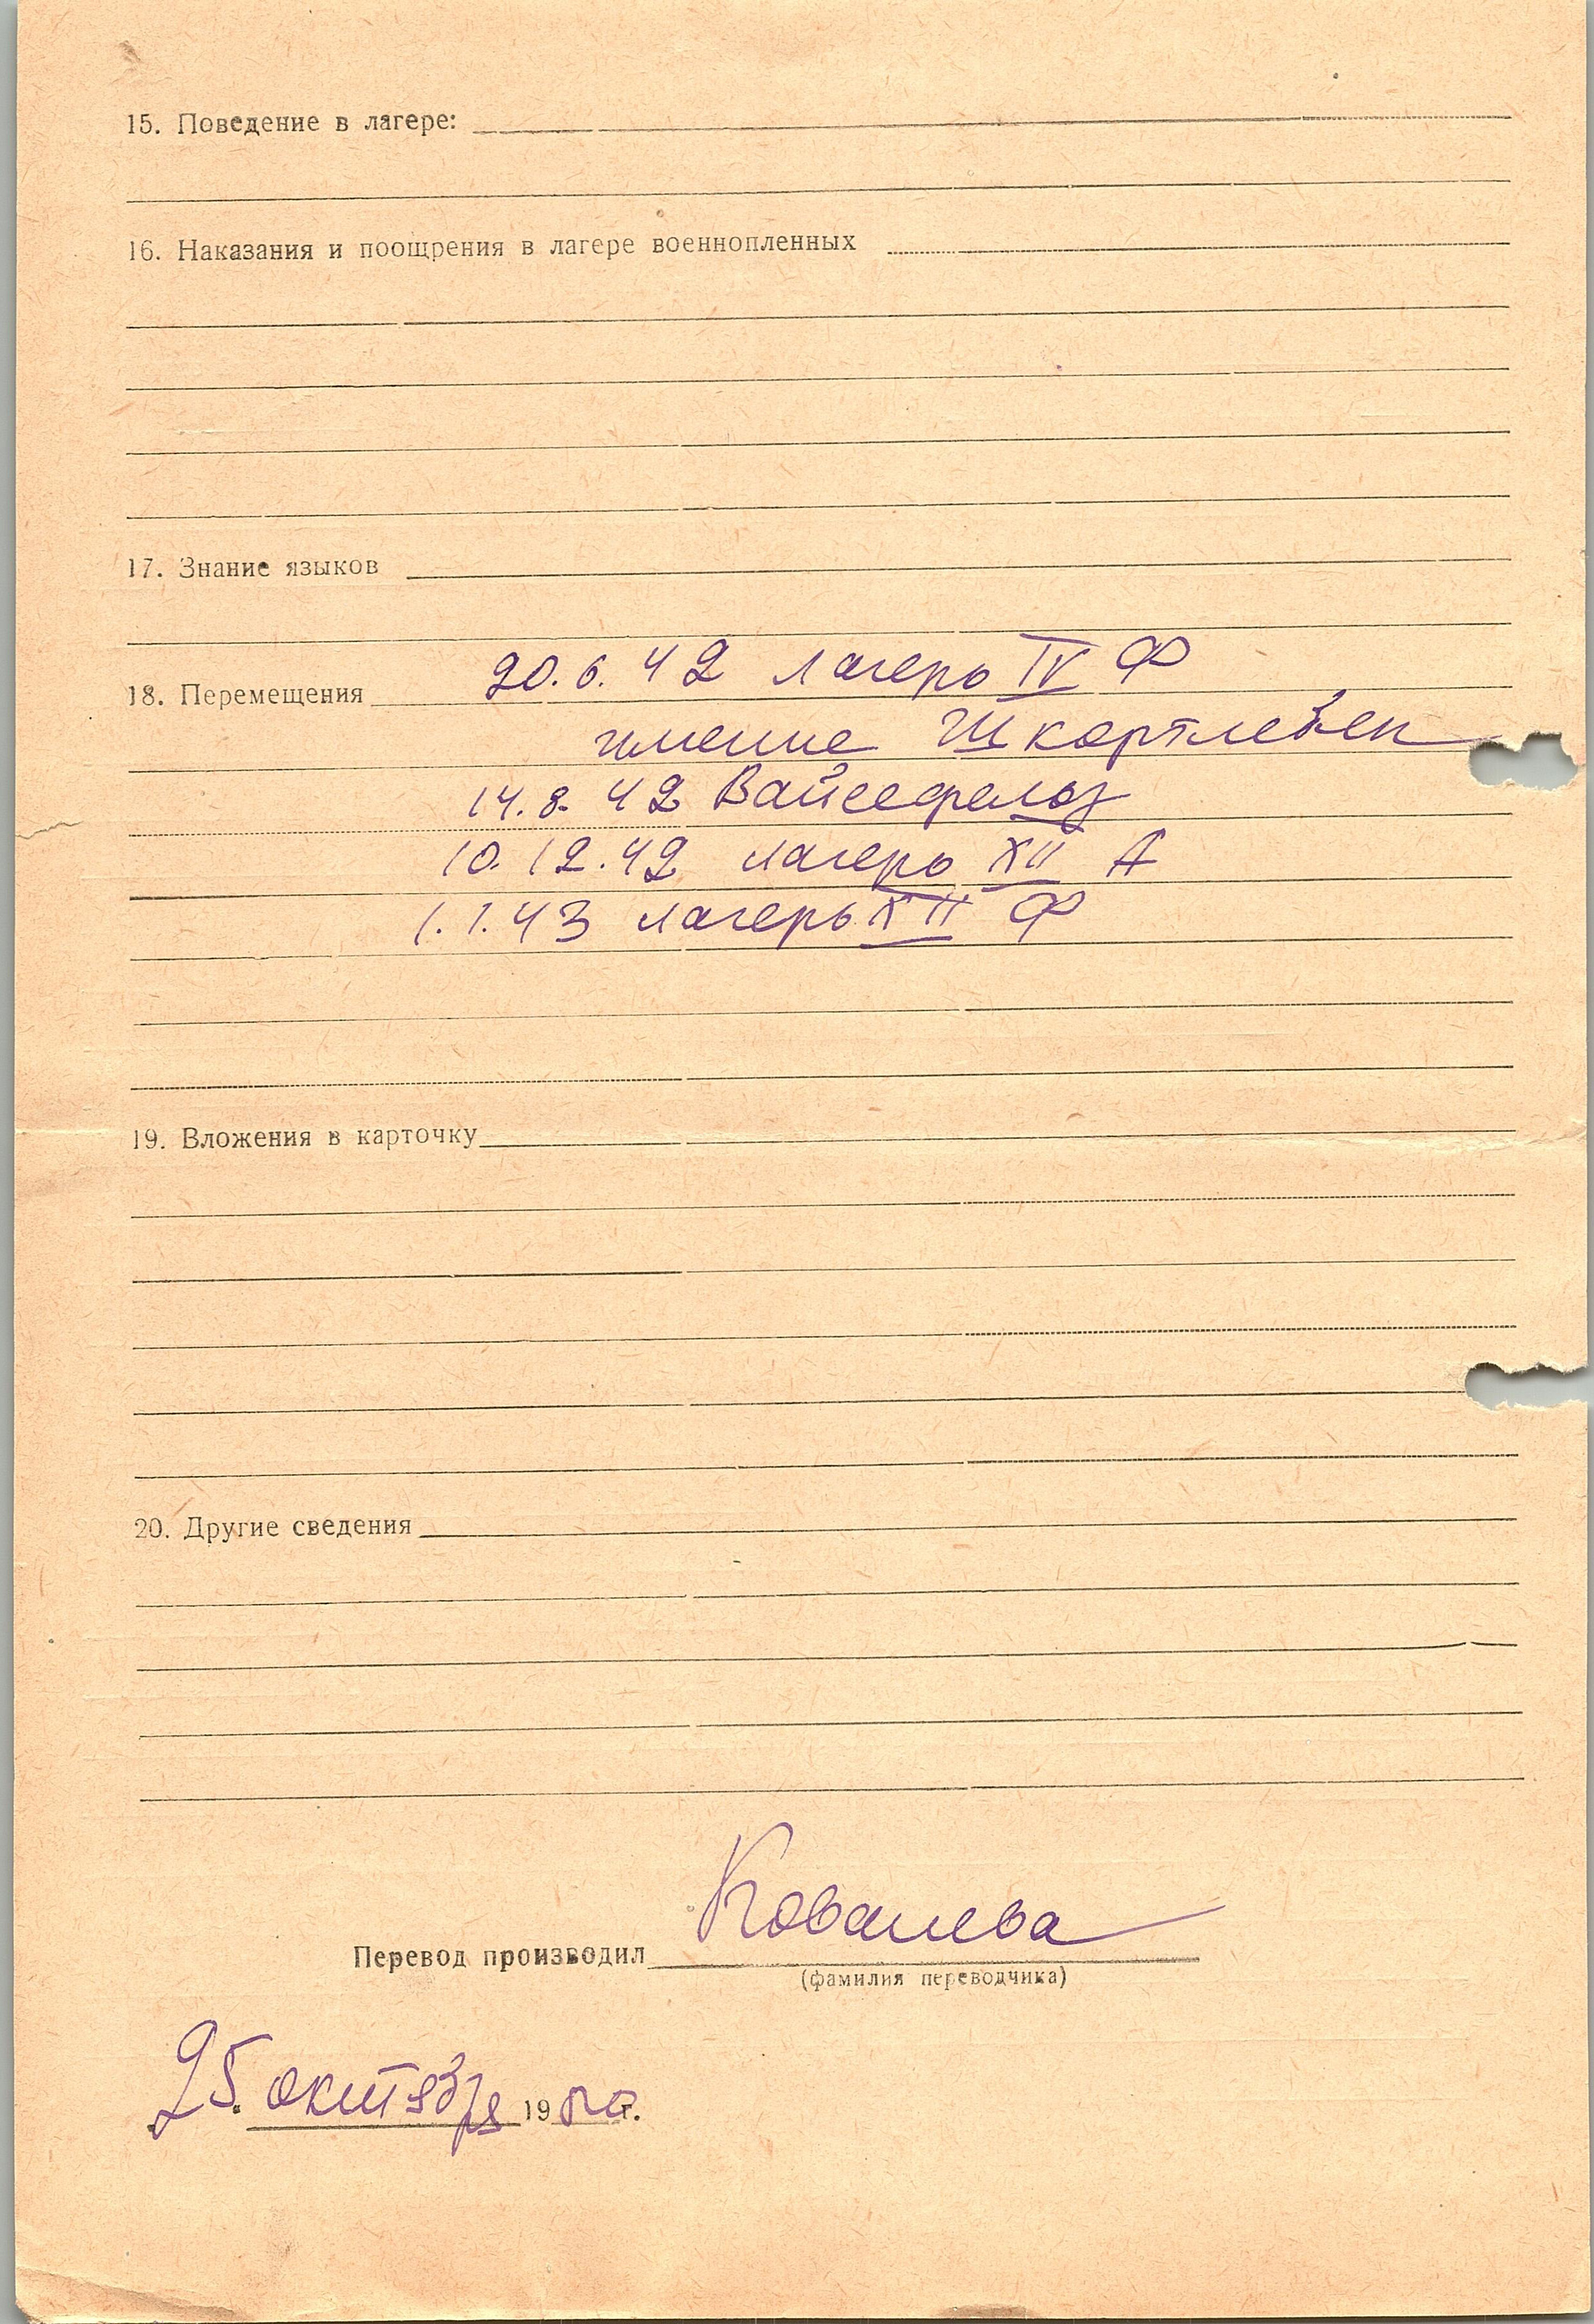 15. Поведение в лагере:
16. Наказания и поощрения в лагере военнопленных
17. Знание языков
18. Перемещения 20.6.42 лагерь IV Ф
имение
14.8.42 Вайсефельз
10.12.42 лагерь XII А
1.1.43 лагерь XII Ф
19. Вложения в карточку
20. Другие сведения
Перевод производил Ковалева
(фамилия переводчика)
25. октября 19 г.